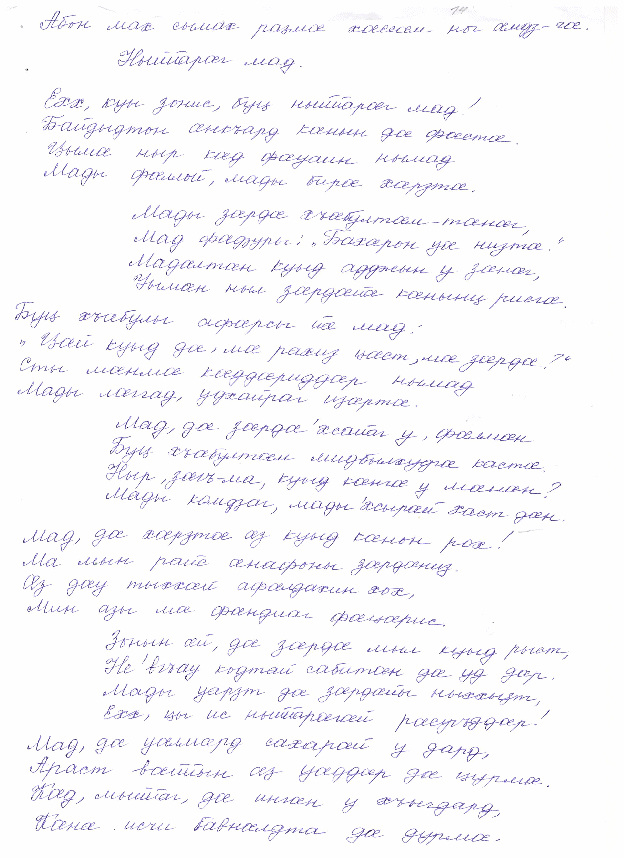 Абон мах сымах размæ хæссæм ног æмдз-гæ.
Ныййарæг мад.
Ехх, куы зонис, буц ныййарæг мад!
Байдыдтон æнкъард кæнын дæ фæстæ.
Цыма ныр кæд фæуаин нымад
Мады фæллой, мады бирæ хæрзтæ.
Мады зæрдæ хъæбултæм-тæнаг,
Мад фæдзуры: "Бахæрон уæ низтæ."
Мадæлтæн куыд адджын у зæнæг,
Уымæн ныл зæрдæйæ кæныц рисгæ.
Буц хъæбулы афæрсы йæ мад:
"Цæй куыд дæ, мæ рахиз цæст, мæ зæрдæ?"
Сты мæнмæ кæддæриддæр нымад
Мады лæггад, удхайраг цæртæ.
Мад, дæ зæрдæ 'хсайаг у, фæлмæн
Буц хъæбултæм мидбылхудгæ кæстæ.
Ныр, зæгъ-ма, куыд кæнгæ у мæмæн?
Мады комдзаг, мады 'хсырæй хаст дæн.
Мад, дæ хæрзтæ æз куыд кæнон рох!
Ма мын райс æнафоны зæрдæниз.
Æз дæу тыххæй афæлдахин хох,
Мин азы мæ фæндиаг фæцæрис.
Зонын æй, дæ зæрдæ мыл куыд рыст,
Не 'вгъау кодтай сабитæн дæ уд дæр.
Мады уарзт дæ зæрдæйы ныххызт,
Ехх, цы ис ныййарæгæй рæсугъддæр!
Мад, дæ уæлмæрд сахарæй у дард,
Арæст вæййын æз уæддæр дæ цурмæ.
Кæд, мыййаг, дæ ингæн у хъыгдард,
Кæнæ исчи бавнæлдта дæ дурмæ.